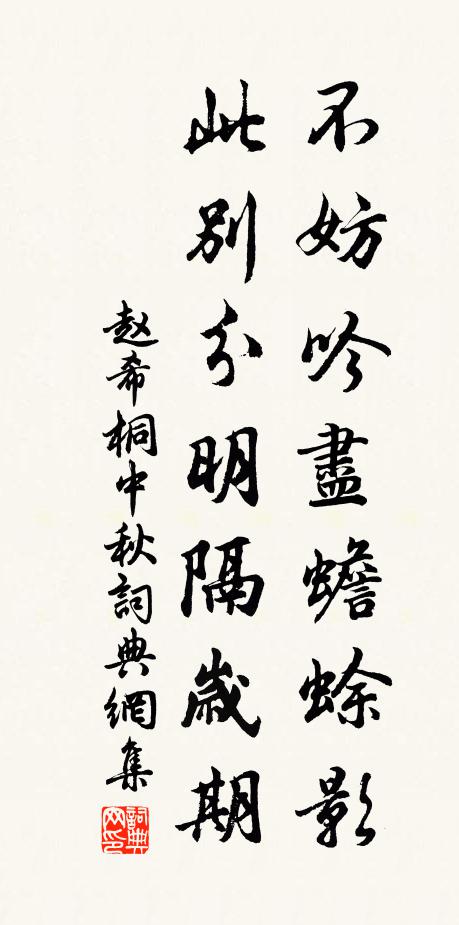 不妨吟盡蟾蜍影
此別分明隔歲期
赵希桐中秋詞典網集
詞典网印